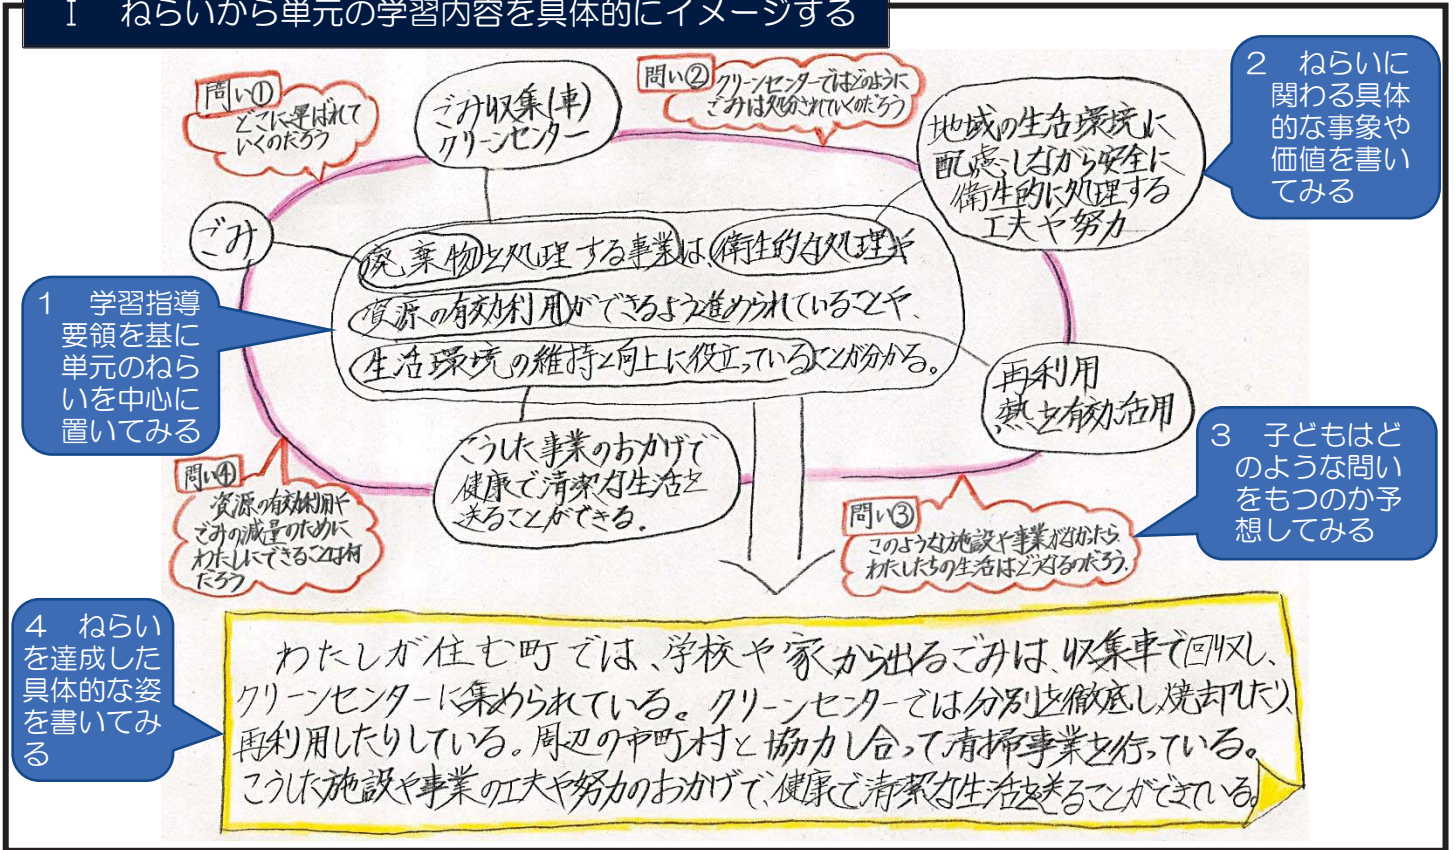 Ⅰ ねらいから単元の学習内容を具体的にイメージする
問い①
どこに運ばれて
いくのだろう
ごみ収集(車)
クリーンセンター
問い②
クリーンセンターではどのように
ごみは処分されていくのだろう
地域の生活環境に
配慮しながら安全に
衛生的に処理する
工夫や努力
2 ねらいに
関わる具体
的な事象や
価値を書い
てみる
ごみ
廃棄物を処理する事業は、衛生的な処理や
資源の有効利用ができるよう進められていることや、
生活環境の維持と向上に役立っていることが分かる。
1 学習指導
要領を基に
単元のねら
いを中心に
置いてみる
再利用
熱を有効活用
こうした事業のおかげで
健康で清潔な生活を
送ることができる。
3 子どもはど
のような問い
をもつのか予
想してみる
問い④
資源の有効利用や
ごみの減量のために
わたしにできることは何
だろう
問い③
このような施設や事業がなかったら
わたしたちの生活はどうなるのだろう。
4 ねらい
を達成した
具体的な姿
を書いてみ
る
わたしが住む町では、学校や家から出るごみは、収集車で回収し、
クリーンセンターに集められている。クリーンセンターでは分別を徹底し、焼却したり、
再利用したりしている。周辺の市町村と協力し合って清掃事業を行っている。
こうした施設や事業の工夫や努力のおかげで、健康で清潔な生活を送ることができている。